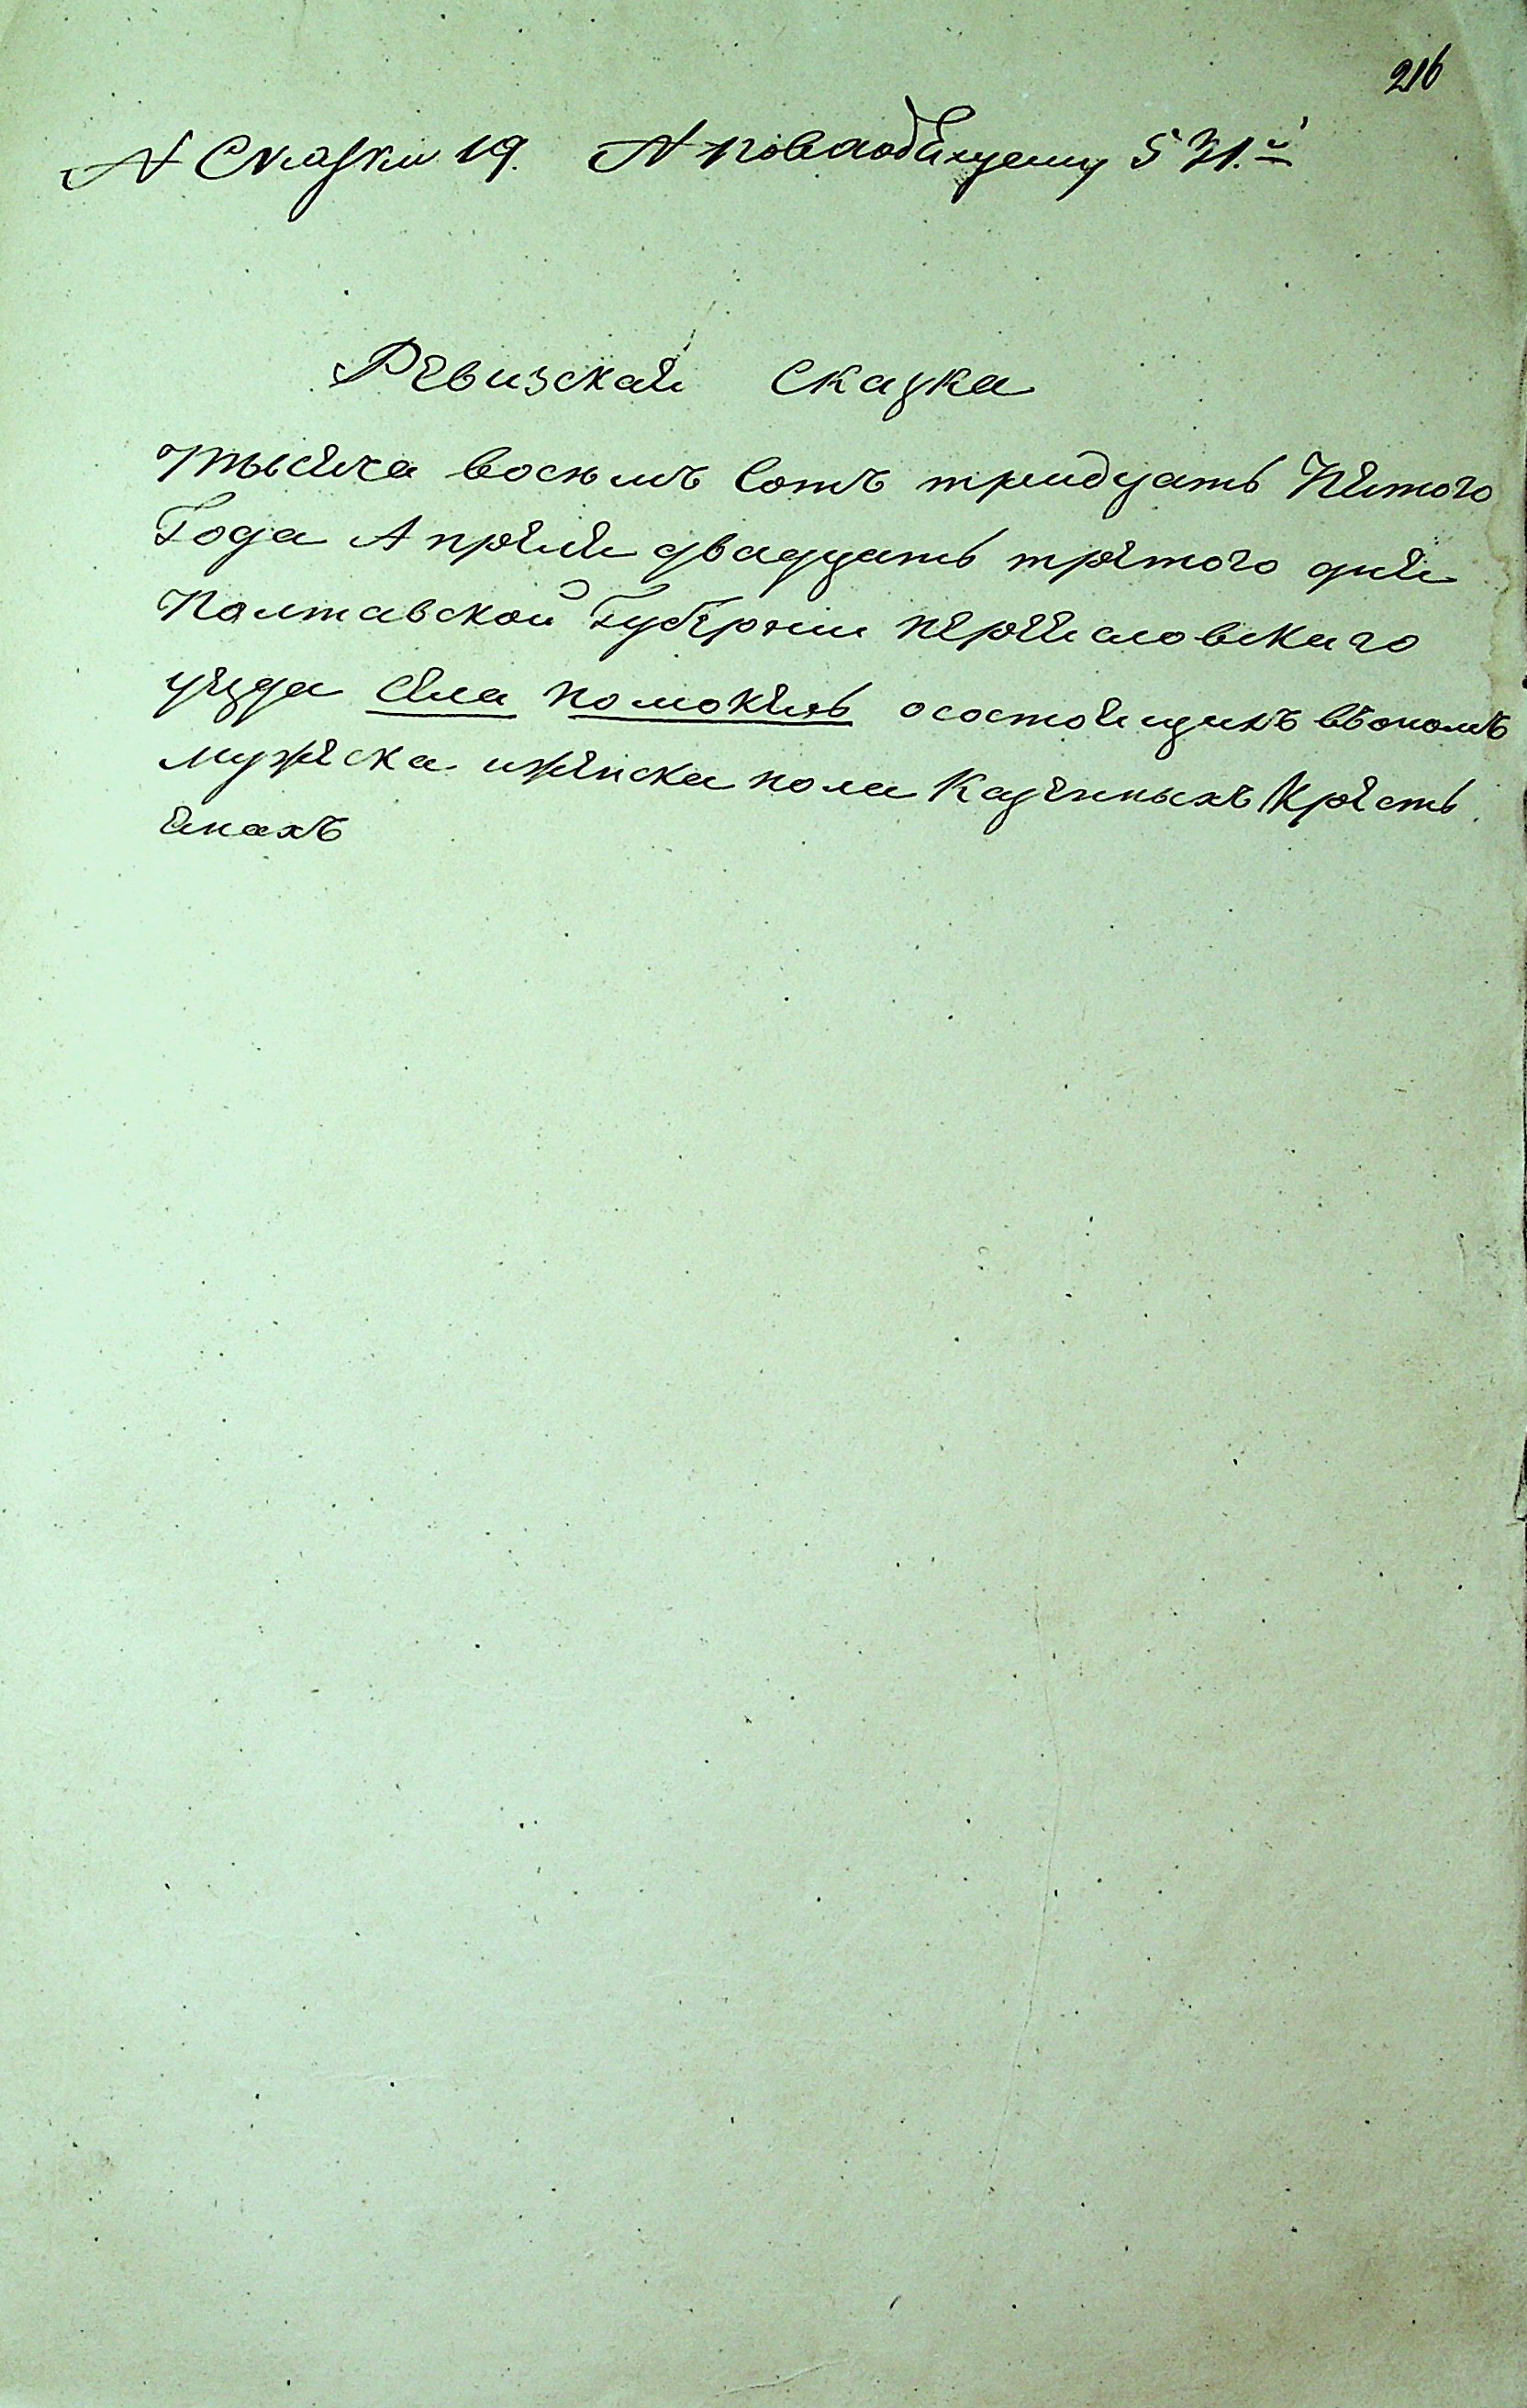 216
N Сказки 19. N поваодящему 571.й
Ревизская Сказка
тысяча восьмъ Сотъ тридцать Пятого
Года Апреля двадцать третого дня
Полтавской Губернии переясловскаго
уезда села Помоклѣ осостоящихъ въономъ
мужеска иженска пола Казенныхъ Кресть
янахъ